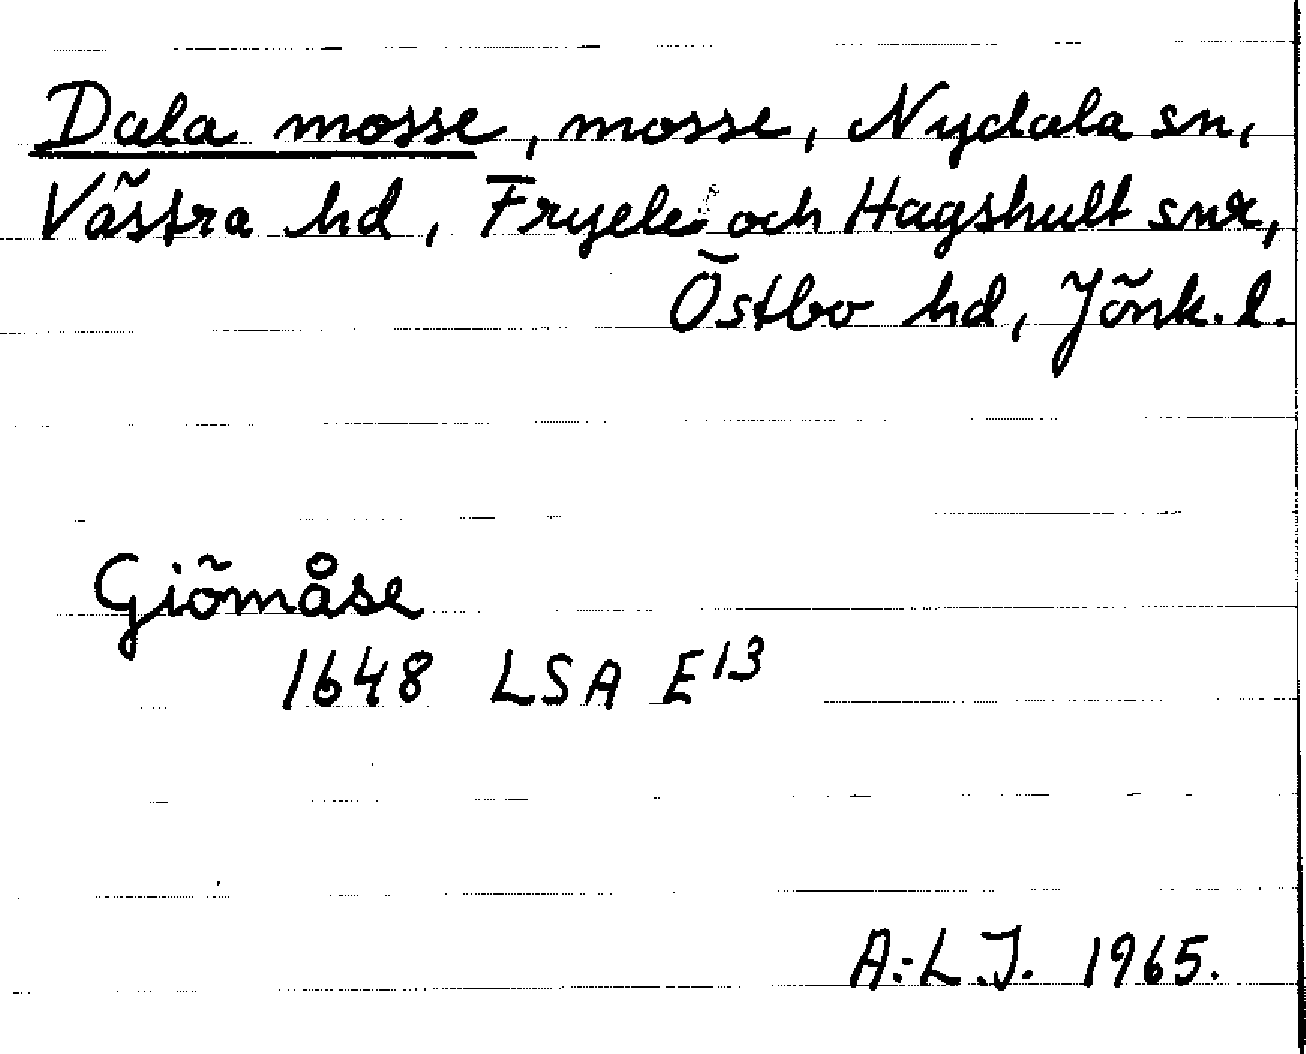 Dala mosse, mosse, Nydala sn,
Västra hd, Fryele och Hagshult snr,
Östbo hd, Jönk. l.
Giömåse
1648 LSA E13
A.-L.J. 1965.